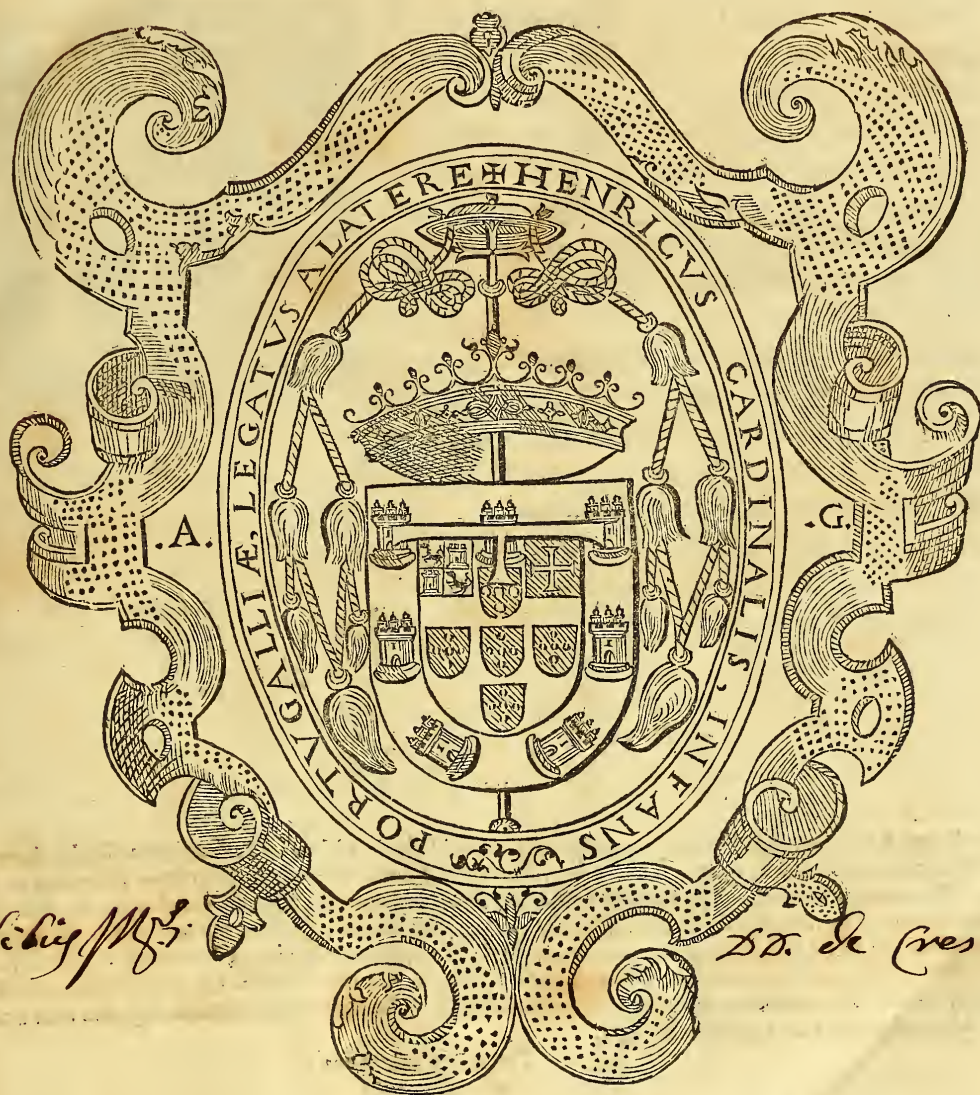 ✠ HENRICVS CARDINALIS · INFANS PORTVGALLIÆ, LEGATVS ALATERE
.A. .G.
DD. de Cres